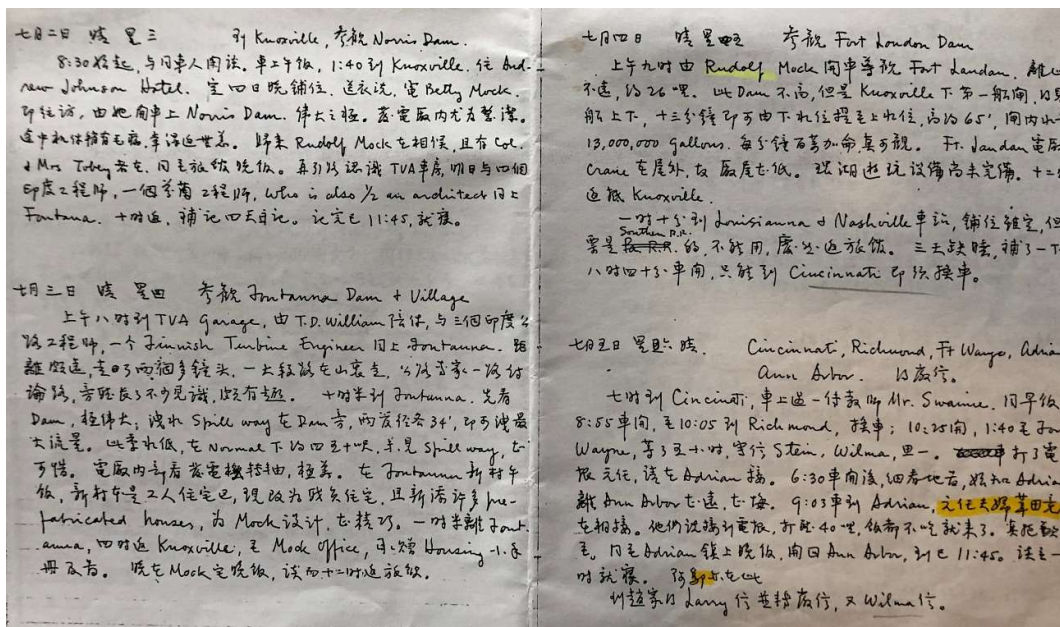 七月二日 晴 星三 到 Knoxville, 參觀 Norris Dam.
8:30 始起, 与同車人閒談. 車上午飯, 1:40 到 Knoxville. 住 And-
rew Johnson Hotel. 定四日晚鋪位. 送衣洗, 電 Betty Mock.
即往訪, 由她開車上 Norris Dam. 偉大之極. 發電厰内尤為整潔.
途中机件稍有毛病, 幸漏返無恙. 歸来 Rudolf Mock 在相候, 且有 Col.
& Mrs Tobey 者在. 同至旅館晚飯. 再引路認識 TVA 車房, 明日与四個
印度工程師, 一個芬蘭工程師, who is also 1/2 an architect 同上
Fontana. 十时返, 補記四天日記. 記完已 11:45, 就寢.
七月三日 晴 星四 參觀 Fontanna Dam & Village
上午八时到 TVA Garage, 由 T.D. William 陪伴, 与三個印度公
路工程師, 一个 Finnish Turbine Engineer 同上 Fontanna. 距
離頗遠, 走了兩個多鐘头. 一大段路在山裏走, 公路專家一路討
論路, 旁聽長了不少見識, 頗有趣. 十时半到 Fontanna. 先看
Dam, 極偉大, 洩水 Spill way 在 Dam 旁, 兩管徑各 34', 即可洩最
大流量. 此季水低, 在 Normal 下約四五十呎, 未見 Spill way, 甚
可惜. 電厰内部看發電機轉軸, 極美. 在 Fontanna 新村午
飯, 新村本是工人住宅區, 現改為残兵住宅, 且新添許多 pre-
fabricated houses, 为 Mock 設計, 甚精巧. 一时半離 Font-
anna, 四时返 Knoxville, 至 Mock Office, 贈 Housing
冊. 晚在 Mock 宅晚飯, 談而十二时返旅館.
七月四日 晴 星五 參觀 Fort Loudon Dam
上午九时由 Rudolf Mock 開車導觀 Fort Laudan. 離
不遠, 約 26 哩. 此 Dam 不高, 但是 Knoxville 下第一船閘,
船上下, 十三分鐘即可由下水位擢至上水位, 高約 65', 閘内水
13,000,000 gallons. 每分鐘百萬加侖, 真可觀. Ft. Laudan 電厰
Crane 在屋外, 故厰屋甚低. 環湖遊玩設備尚未完備. 十二
返抵 Knoxville.
一时十分到 Louisianna & Nashville 車站, 鋪位雖定, 但
票是 Southern R.R. 的, 不能用, 廢然返旅館. 三天缺睡, 補了一下
八时四十分車開, 只能到 Cincinnati 即須換車.
七月五日 星期六 晴. Cincinnati, Richmond, Ft Wayne, Adrian
Ann Arbor. 得慰信.
七时到 Cincinnati, 車上遇一付款师 Mr. Swaine. 同早飯
8:55 車開, 至 10:05 到 Richmond, 換車; 10:25 開, 1:40 至 Fort
Wayne, 等了五小时, 寫信 Stein, Wilma, 思一. 打了電
報元任, 請在 Adrian 接. 6:30 車開後, 細看地圖, 始知 Adrian
離 Ann Arbor 甚遠, 甚悔. 9:03 車到 Adrian, 元任夫婦
在相接. 他們說接到電報, 打听 40 哩, 飯都不吃就来了. 真抱歉
至. 同至 Adrian 鎮上晚飯, 開回 Ann Arbor, 到已 11:45. 談至一
时就寢.
到趙家得 Larry 信並轉慰信, 又 Wilma 信.